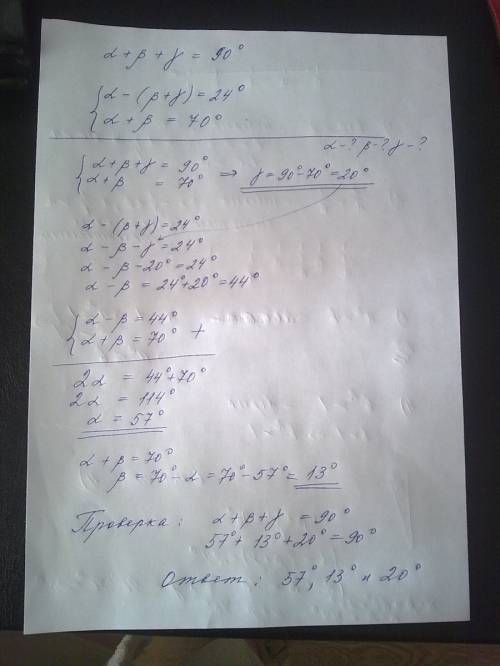 α+β+γ = 90°
{ α-(β+γ)=24°
α+β = 70°
α-? β-? γ-?
{ α+β+γ = 90°
α+β = 70° ⇒ γ=90°-70°=20°
α-(β+γ)=24°
α-β-γ=24°
α-β-20°=24°
α-β = 24°+20°=44°
{ α-β=44°
α+β=70° +
2α = 44°+70°
2α = 114°
α = 57°
α+β=70°
β=70°-α=70°-57°=13°
Проверка: α+β+γ = 90°
57°+13°+20°=90°
Ответ: 57°, 13° и 20°